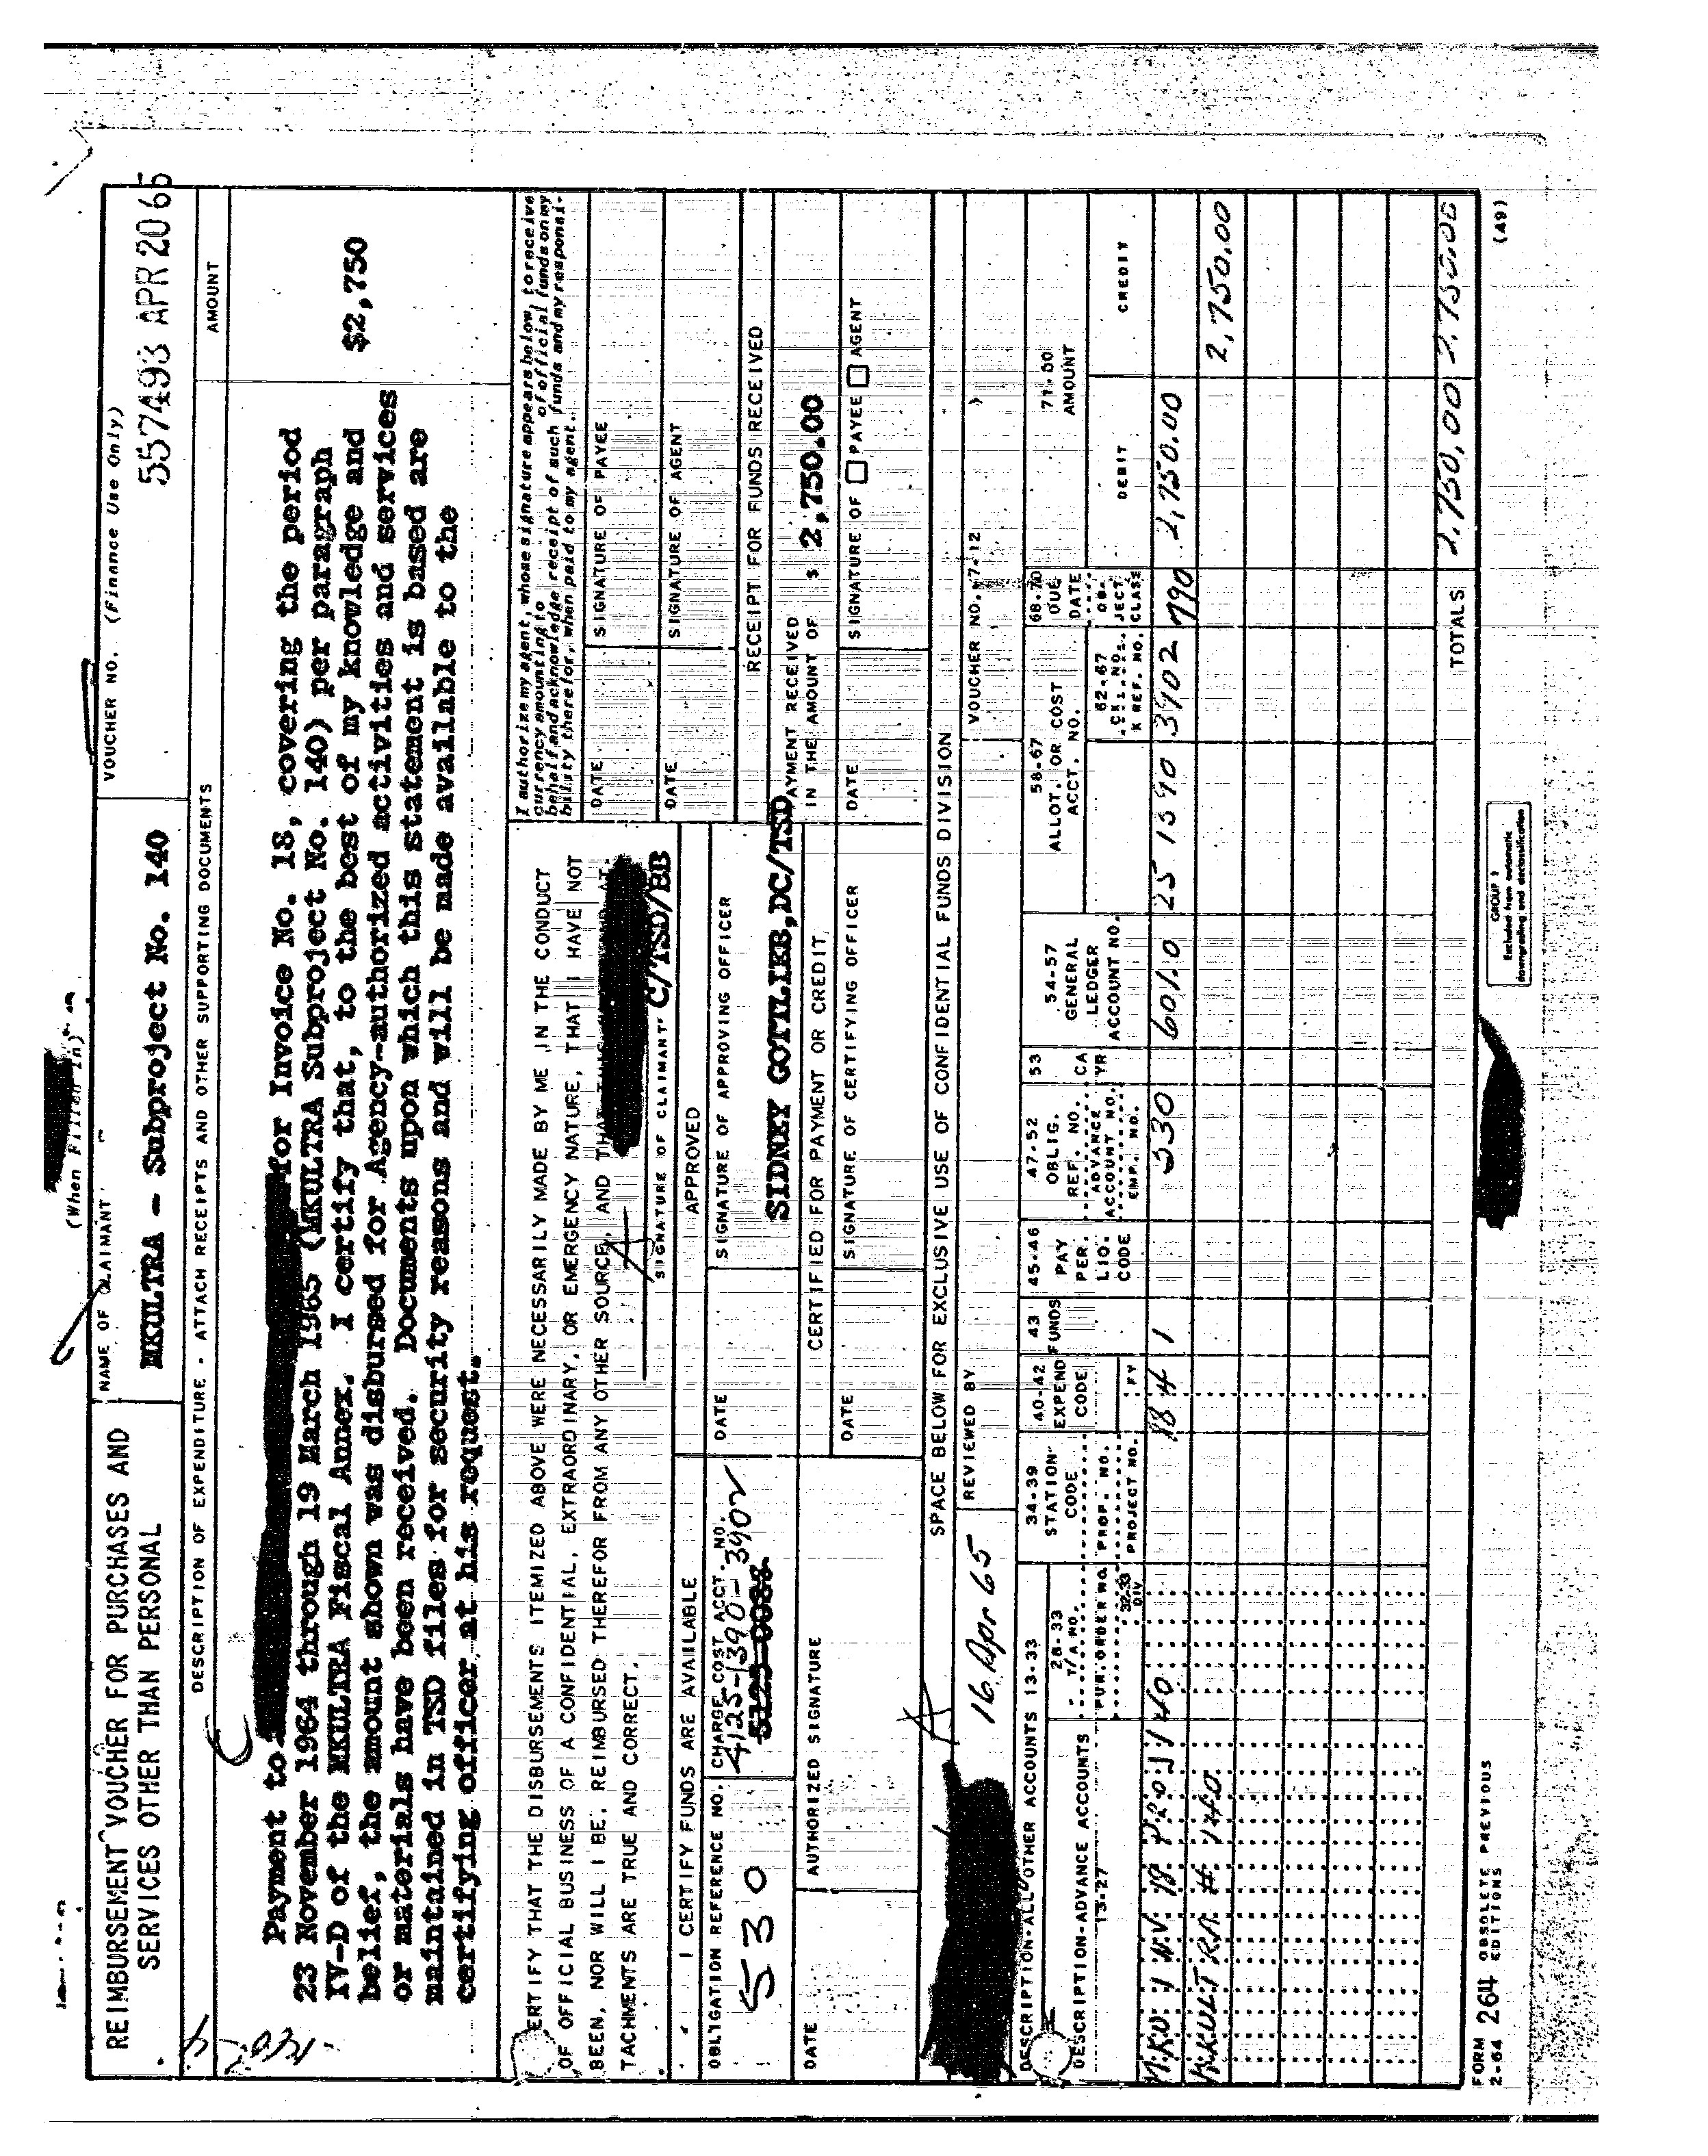 (When Filled In)
REIMBURSEMENT VOUCHER FOR PURCHASES AND
SERVICES OTHER THAN PERSONAL
NAME OF CLAIMANT
MKULTRA - Subproject No. 140
VOUCHER NO. (Finance Use Only)
557493 APR 20 65
DESCRIPTION OF EXPENDITURE - ATTACH RECEIPTS AND OTHER SUPPORTING DOCUMENTS
AMOUNT
Payment to for Invoice No. 18, covering the period
23 November 1964 through 19 March 1965 (MKULTRA Subproject No. 140) per paragraph
IV-D of the MKULTRA Fiscal Annex. I certify that, to the best of my knowledge and
belief, the amount shown was disbursed for Agency-authorized activities and services
or materials have been received. Documents upon which this statement is based are
maintained in TSD files for security reasons and will be made available to the
certifying officer at his request.
$2,750
ERTIFY THAT THE DISBURSEMENTS ITEMIZED ABOVE WERE NECESSARILY MADE BY ME IN THE CONDUCT
OF OFFICIAL BUSINESS OF A CONFIDENTIAL, EXTRAORDINARY, OR EMERGENCY NATURE, THAT I HAVE NOT
BEEN, NOR WILL I BE, REIMBURSED THEREFOR FROM ANY OTHER SOURCE, AND
TACHMENTS ARE TRUE AND CORRECT.
SIGNATURE OF CLAIMANT
C/TSD/BB
I authorize my agent, whose signature appears below, to receive
currency amounting to of official funds on my
behalf and acknowledge receipt of such funds and my responsi-
bility therefor, when paid to my agent.
DATE
SIGNATURE OF PAYEE
DATE
SIGNATURE OF AGENT
I CERTIFY FUNDS ARE AVAILABLE
APPROVED
OBLIGATION REFERENCE NO.
530
CHARGE COST ACCT. NO.
4125-1390-3902
5125-0086
DATE
SIGNATURE OF APPROVING OFFICER
SIDNEY GOTTLIEB, DC/TSD
RECEIPT FOR FUNDS RECEIVED
AYMENT RECEIVED
IN THE AMOUNT OF $ 2,750.00
DATE
AUTHORIZED SIGNATURE
CERTIFIED FOR PAYMENT OR CREDIT
DATE
SIGNATURE OF CERTIFYING OFFICER
DATE
SIGNATURE OF PAYEE AGENT
SPACE BELOW FOR EXCLUSIVE USE OF CONFIDENTIAL FUNDS DIVISION
16 Apr 65
REVIEWED BY
VOUCHER NO. 7-12
DESCRIPTION-ALL OTHER ACCOUNTS 13-33
DESCRIPTION-ADVANCE ACCOUNTS
13-27
28-33
T/A NO.
PUR. ORDER NO.
32-33
DIV
34-39
STATION
CODE
PROP. NO.
PROJECT NO.
40-42
EXPEND
CODE
FY
43
FUNDS
45-46
PAY
PER.
LIQ.
CODE
47-52
OBLIG.
REF. NO.
ADVANCE
ACCOUNT NO.
EMP. NO.
53
CA
YR
54-57
GENERAL
LEDGER
ACCOUNT NO.
58-67
ALLOT. OR COST
ACCT. NO.
62-67
X REF. NO.
68-70
DUE
DATE
OB-
JECT
CLASS
71-80
AMOUNT
DEBIT
CREDIT
INV 18 PROJ 140
184 1 530 601.0 25 1390 3902 790 2,750.00
MKULTRA # 140
2,750.00
TOTALS 2,750.00 2,750.00
FORM 264 OBSOLETE PREVIOUS
2-64 EDITIONS
GROUP 1
Excluded from automatic
downgrading and declassification
(49)